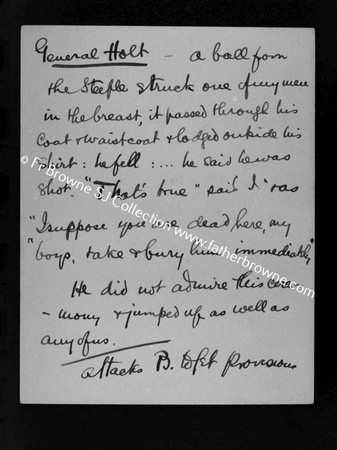 General Holt - a ball from
the Steeple struck one of my men
in the breast, it passed through his
coat & waistcoat & lodged outside his
shirt: he fell: ... he said he was
shot. "That's true" said I "as
"I suppose you are dead here, my
"boys, take & bury him immediately"
He did not admire this cere-
-mony & jumped up as well as
any of us.
attacks B. to get provisions
© Fr Browne SJ Collection www.fatherbrowne.com